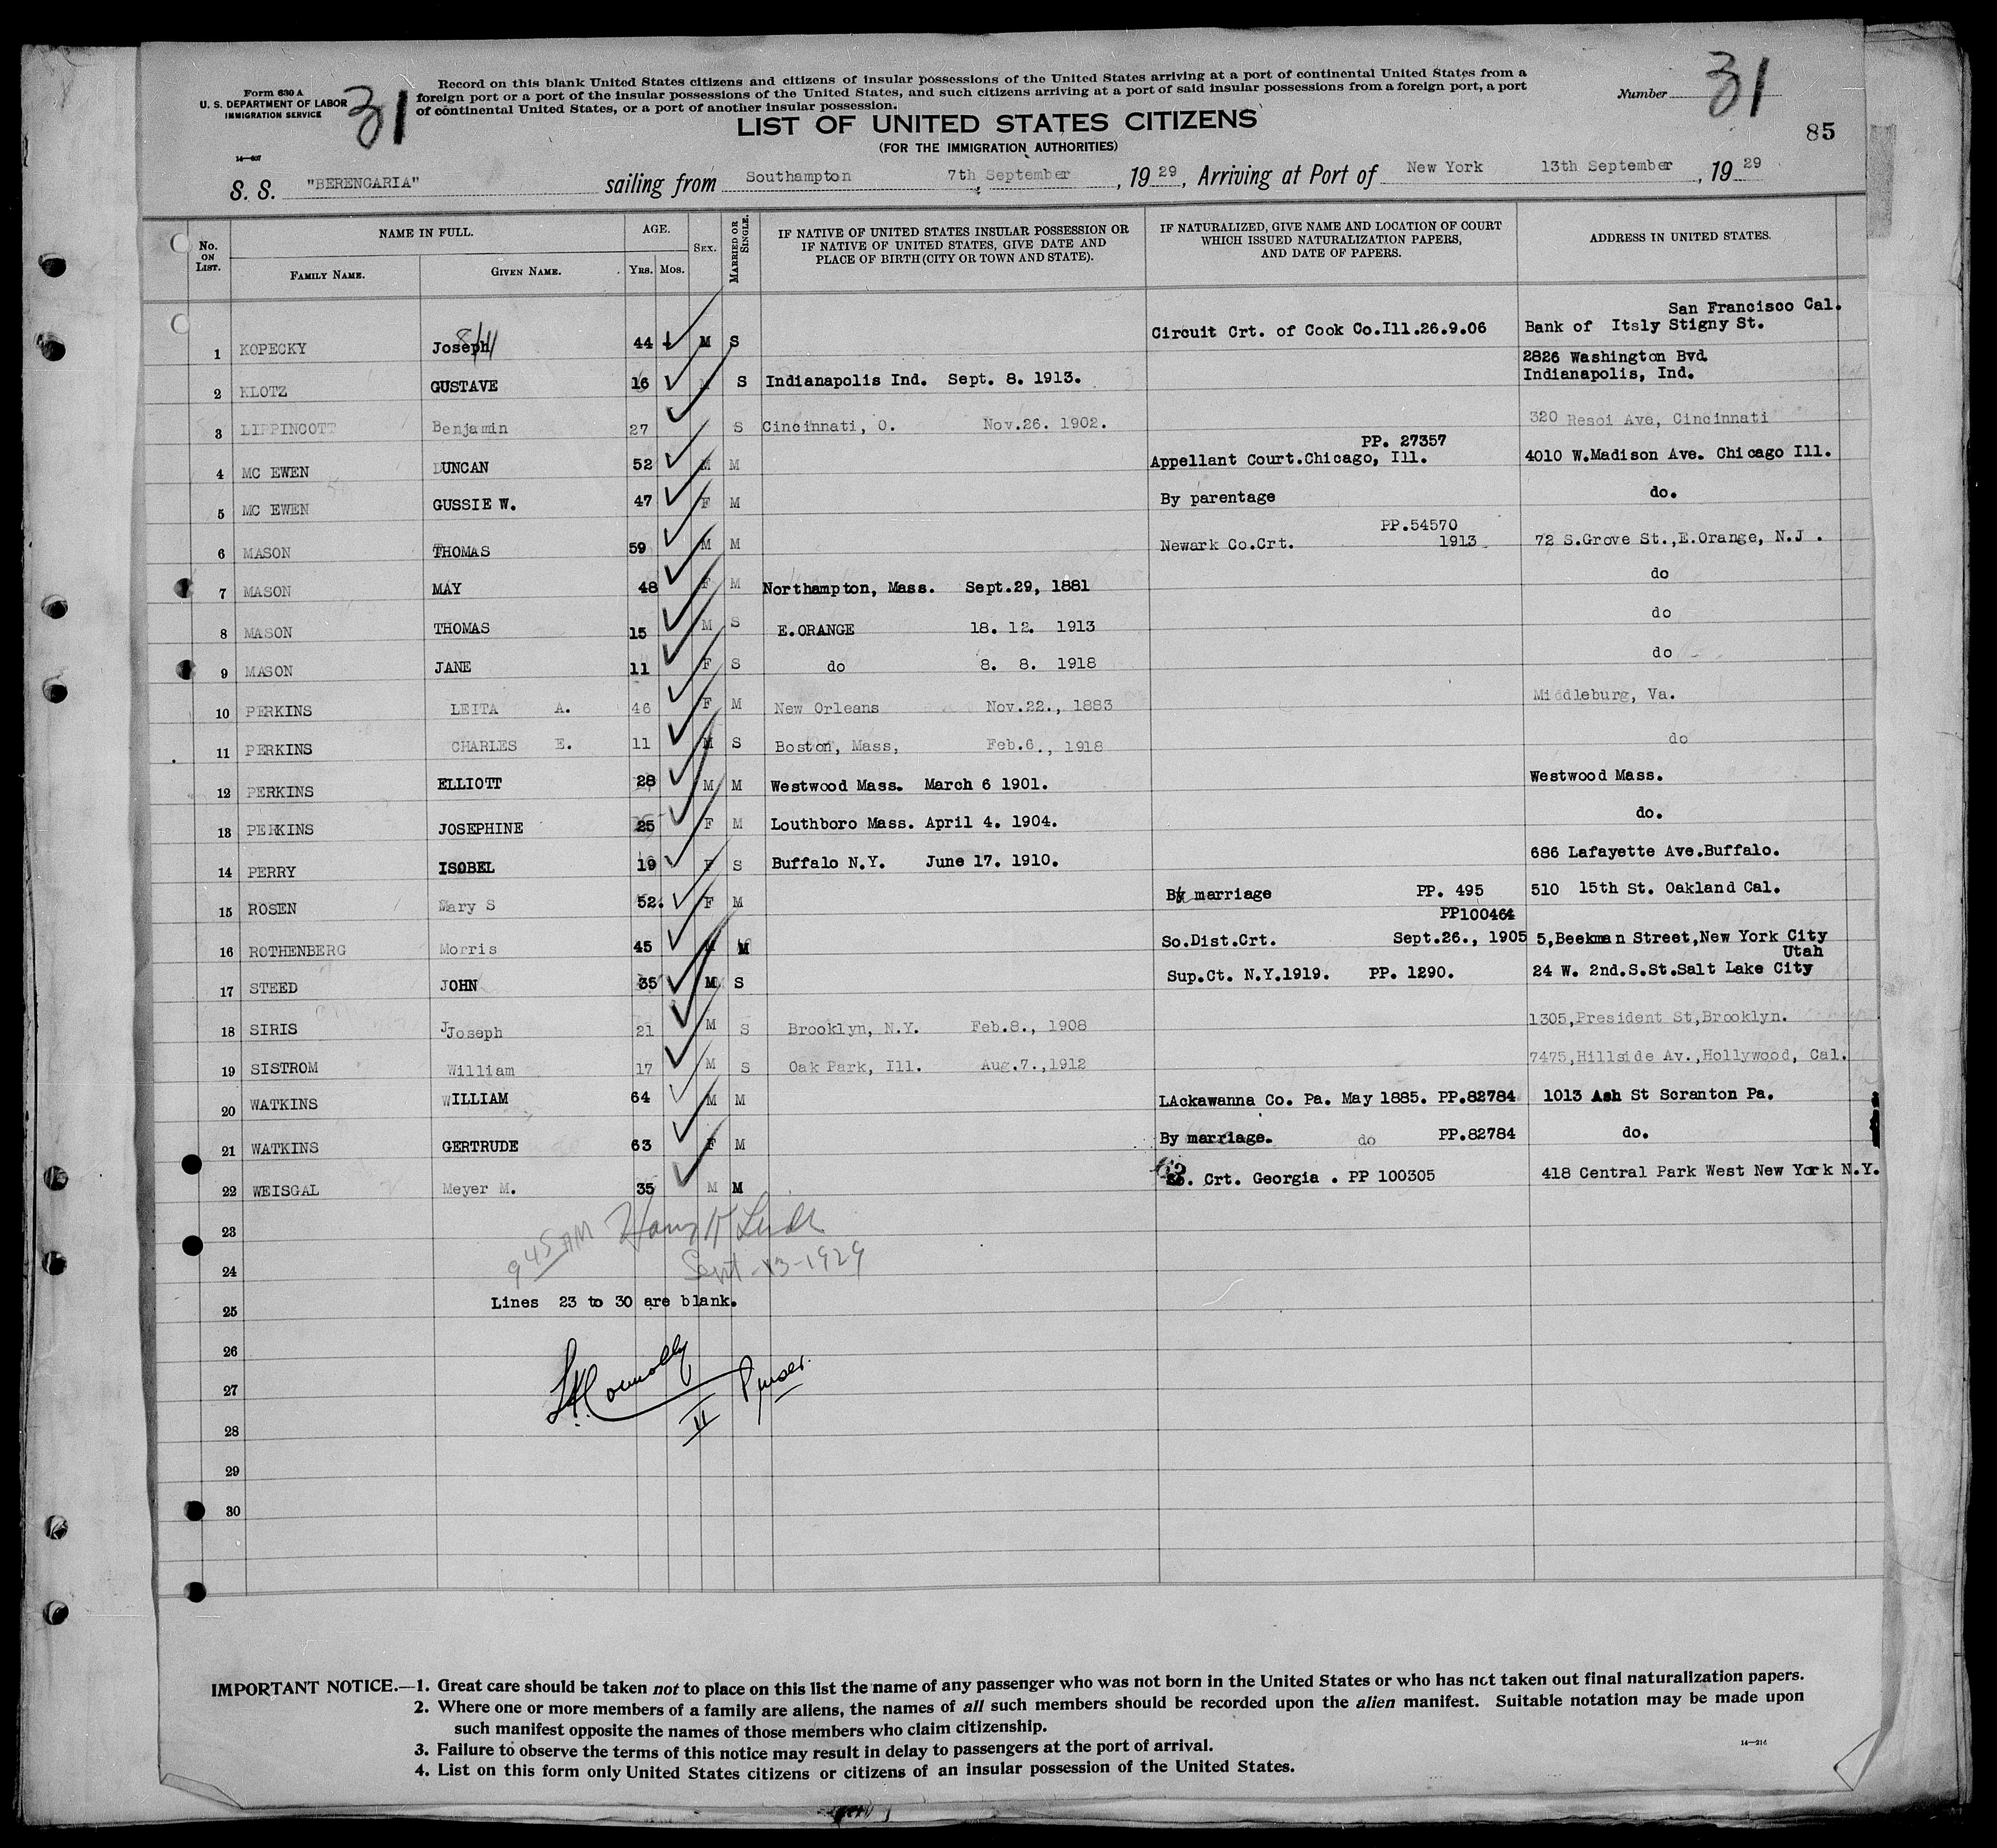 Form 630 A
U. S. DEPARTMENT OF LABOR
IMMIGRATION SERVICE
31
Record on this blank United States citizens and citizens of insular possessions of the United States arriving at a port of continental United States from a
foreign port or a port of the insular possessions of the United States, and such citizens arriving at a port of said insular possessions from a foreign port, a port
of continental United States, or a port of another insular possession.
Number 31
LIST OF UNITED STATES CITIZENS
85
(FOR THE IMMIGRATION AUTHORITIES)
S. S. "BERENGARIA" sailing from Southampton 7th September, 1929, Arriving at Port of New York 13th September, 1929
No. ON LIST. NAME IN FULL. FAMILY NAME. GIVEN NAME. AGE. YRS. MOS. SEX. MARRIED OR SINGLE. IF NATIVE OF UNITED STATES INSULAR POSSESSION OR IF NATIVE OF UNITED STATES, GIVE DATE AND PLACE OF BIRTH (CITY OR TOWN AND STATE). IF NATURALIZED, GIVE NAME AND LOCATION OF COURT WHICH ISSUED NATURALIZATION PAPERS, AND DATE OF PAPERS. ADDRESS IN UNITED STATES.
San Francisco Cal.
1 KOPECKY Joseph 44 M S Circuit Crt. of Cook Co.Ill.26.9.06 Bank of Itsly Stigny St.
2826 Washington Bvd
2 KLOTZ GUSTAVE 16 M S Indianapolis Ind. Sept. 8. 1913. Indianapolis, Ind.
3 LIPPINCOTT Benjamin 27 S Cincinnati, O. Nov.26. 1902. 320 Resoi Ave, Cincinnati
PP. 27357
4 MC EWEN DUNCAN 52 M M Appellant Court.Chicago, Ill. 4010 W.Madison Ave. Chicago Ill.
5 MC EWEN GUSSIE W. 47 F M By parentage do.
PP.54570
6 MASON THOMAS 59 M M Newark Co.Crt. 1913 72 S.Grove St.,E.Orange, N.J .
7 MASON MAY 48 F M Northampton, Mass. Sept.29, 1881 do
8 MASON THOMAS 15 M S E.ORANGE 18. 12. 1913 do
9 MASON JANE 11 F S do 8. 8. 1918 do
10 PERKINS LEITA A. 46 F M New Orleans Nov.22., 1883 Middleburg, Va.
11 PERKINS CHARLES E. 11 M S Boston, Mass, Feb.6., 1918 do
12 PERKINS ELLIOTT 28 M M Westwood Mass. March 6 1901. Westwood Mass.
13 PERKINS JOSEPHINE 25 F M Louthboro Mass. April 4. 1904. do.
14 PERRY ISOBEL 19 F S Buffalo N.Y. June 17. 1910. 686 Lafayette Ave.Buffalo.
15 ROSEN Mary S 52. F M By marriage PP. 495 510 15th St. Oakland Cal.
PP100464
16 ROTHENBERG Morris 45 M M So.Dist.Crt. Sept.26., 1905 5,Beekman Street,New York City
Utah
17 STEED JOHN 35 M S Sup.Ct. N.Y.1919. PP. 1290. 24 W. 2nd.S.St.Salt Lake City
18 SIRIS JJoseph 21 M S Brooklyn, N.Y. Feb.8., 1908 1305,President St,Brooklyn.
19 SISTROM William 17 M S Oak Park, Ill. Aug.7.,1912 7475,Hillside Av.,Hollywood, Cal.
20 WATKINS WILLIAM 64 M M LAckawanna Co. Pa. May 1885. PP.82784 1013 Ash St Scranton Pa.
21 WATKINS GERTRUDE 63 F M By marriage. do PP.82784 do.
22 WEISGAL Meyer M. 35 M M Crt. Georgia . PP 100305 418 Central Park West New York N.Y.
23
945 AM
24 Sept-13-1929
25 Lines 23 to 30 are blank.
26
27 Connolly II Purser.
28
29
30
IMPORTANT NOTICE.—1. Great care should be taken not to place on this list the name of any passenger who was not born in the United States or who has not taken out final naturalization papers.
2. Where one or more members of a family are aliens, the names of all such members should be recorded upon the alien manifest. Suitable notation may be made upon
such manifest opposite the names of those members who claim citizenship.
3. Failure to observe the terms of this notice may result in delay to passengers at the port of arrival.
4. List on this form only United States citizens or citizens of an insular possession of the United States.